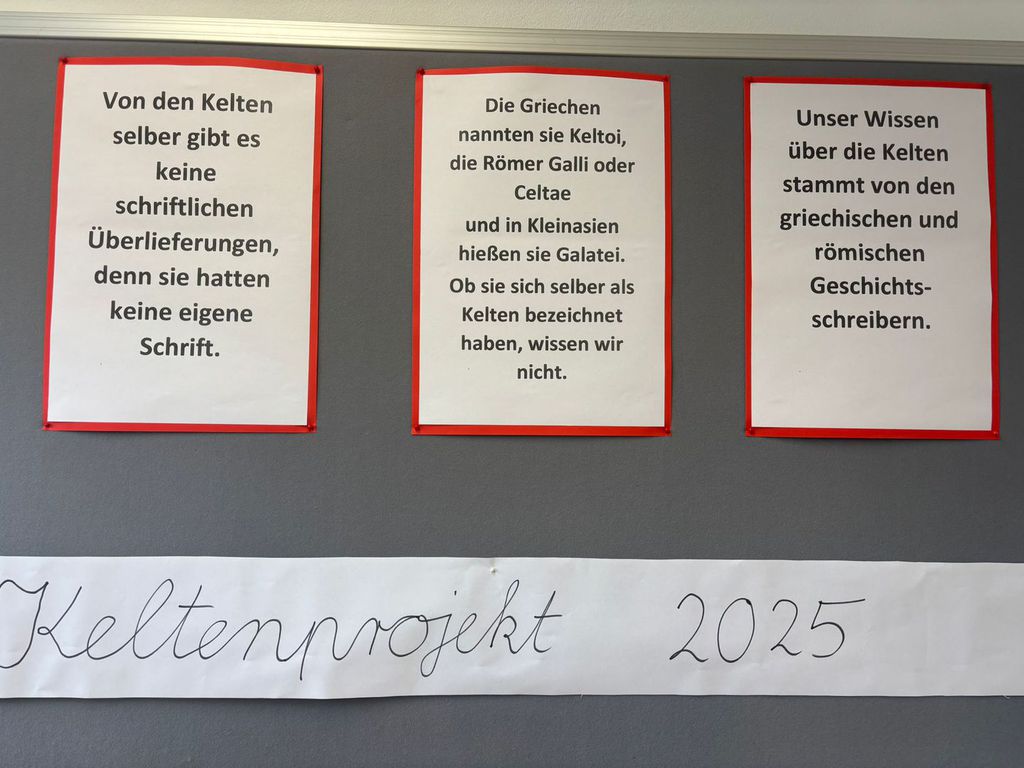 Von den Kelten
selber gibt es
keine
schriftlichen
Überlieferungen,
denn sie hatten
keine eigene
Schrift.
Die Griechen
nannten sie Keltoi,
die Römer Galli oder
Celtae
und in Kleinasien
hießen sie Galatei.
Ob sie sich selber als
Kelten bezeichnet
haben, wissen wir
nicht.
Unser Wissen
über die Kelten
stammt von den
griechischen und
römischen
Geschichts-
schreibern.
Keltenprojekt 2025